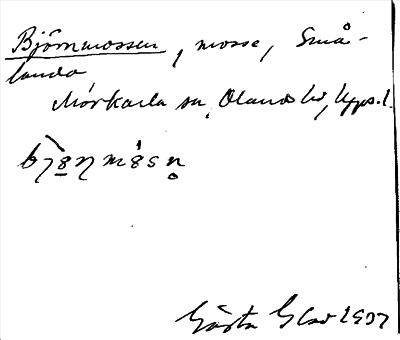 Björnmossen, mosse, Små-
landa
Morkarla sn, Olands hd, Upps. l.
Gösta Glad 1937